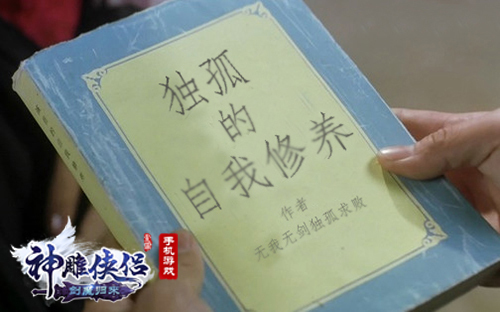 独孤
的
自我修养
作者
无我无剑独孤求败
神雕侠侣
手机游戏
剑魔归来